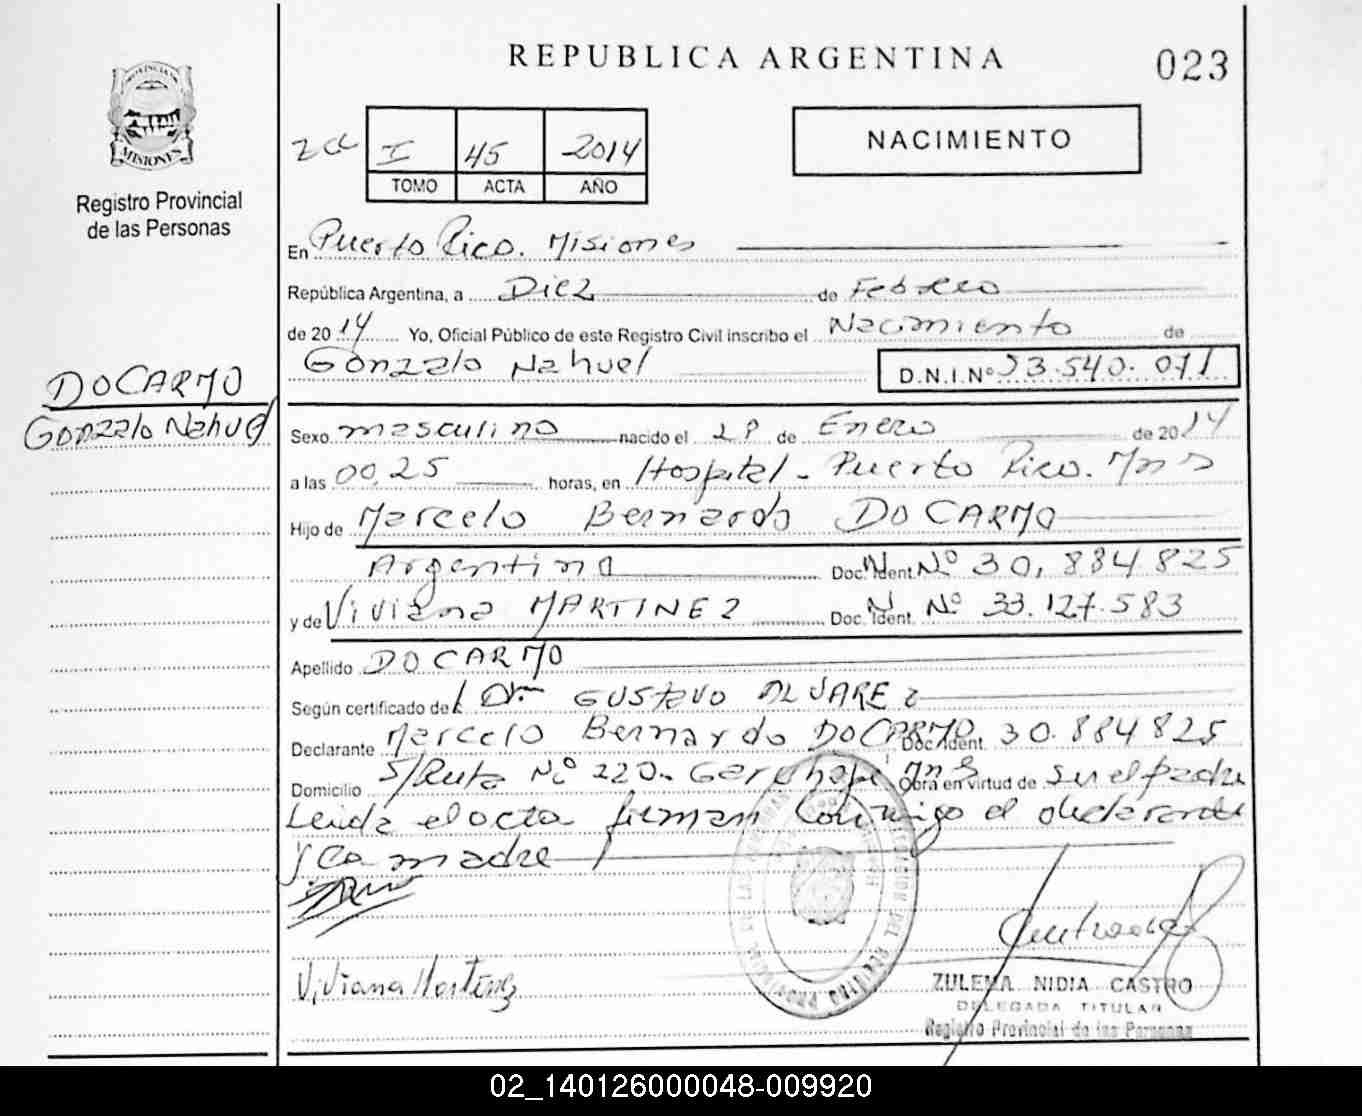 REPUBLICA ARGENTINA
023
PROVINCIA DE
MISIONES
Registro Provincial
de las Personas
I 45 2014
TOMO ACTA AÑO
NACIMIENTO
En Puerto Rico. Misiones
República Argentina, a Diez de Febrero
de 2014 Yo, Oficial Público de este Registro Civil inscribo el Nacimiento de
Gonzalo Nahuel D.N.I.Nº 53.540.071
DO CARMO
Gonzalo Nahuel
Sexo masculino nacido el de Enero de 2014
a las 00,25 horas, en Hospital - Puerto Rico. Mns
Hijo de Marcelo Bernardo DO CARMO
Argentina Doc. Ident. Nº 30.884.825
y de Viviana MARTINEZ Doc. Ident. Nº 33.127.583
Apellido DO CARMO
Según certificado del Dr. GUSTAVO ALVAREZ
Declarante Marcelo Bernardo DO CARMO Doc. Ident. 30.884.825
Domicilio S/Ruta Nº 220. Garuhape Mns Obra en virtud de Ser el padre
Leida el acta firman conmigo el declarante
y la madre
Viviana Martinez
ZULEMA NIDIA CASTRO
DELEGADA TITULAR
Registro Provincial de las Personas
02_140126000048-009920